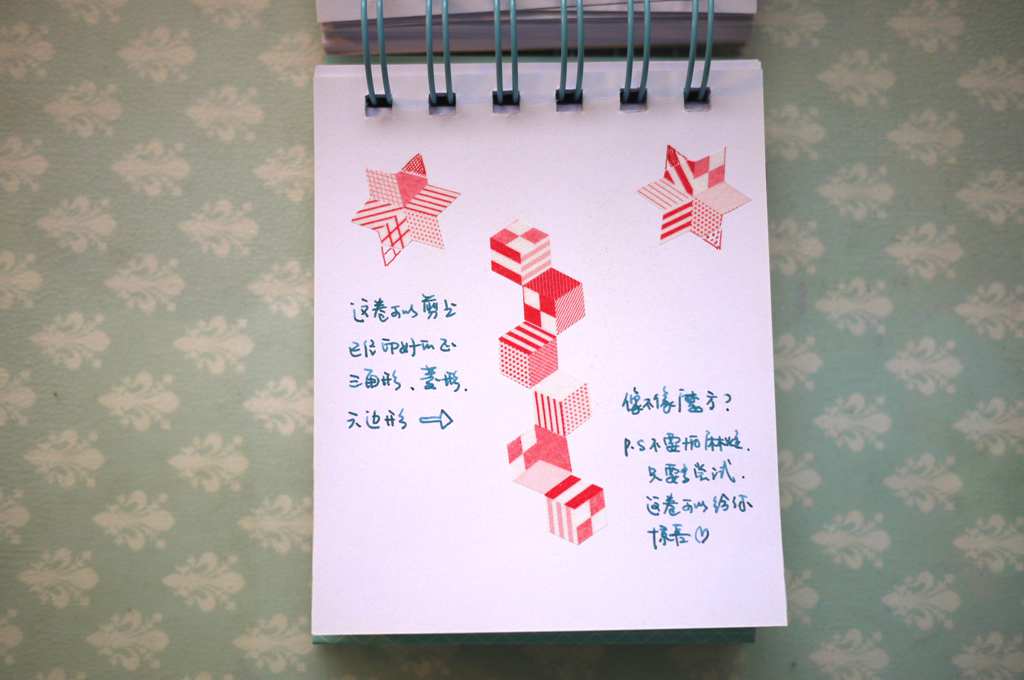 这卷可以剪出
已经印好的正
三角形、菱形.
六边形 ⇨
像不像魔方？
P.S 不要怕麻烦.
只要去尝试.
这卷可以给你
惊喜♡